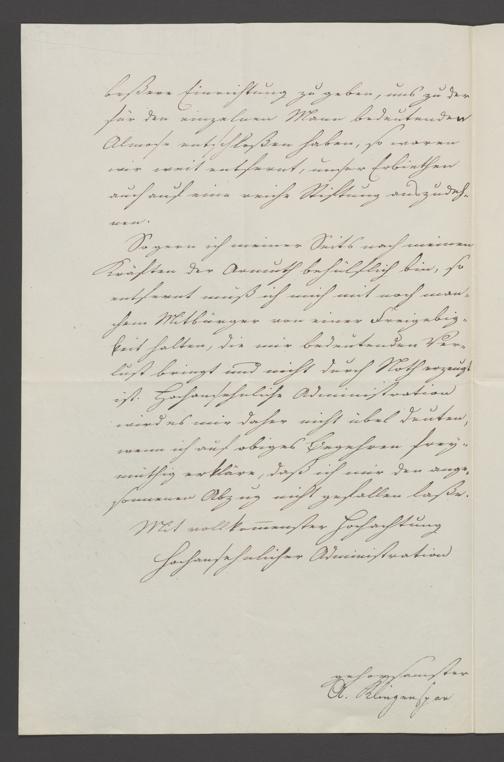 beßere Einrichtung zu geben, uns zu der
für den einzelnen Mann bedeutenden
Almose entschloßen haben, so waren
wir weit entfernt, unser Erbiethen
auch auf eine reiche Stiftung auszudeh-
nen.
So gern ich meiner Seits nach meinen
Kräften der Armuth behülflich bin, so
entfernt muß ich mich mit noch man-
chem Mitbürger von einer Freigebig-
keit halten, die mir bedeutenden Ver-
lust bringt und nicht durch Noth erzeugt
ist. Hochansehnliche Administration
wird es mir daher nicht übel deuten,
wenn ich auf obiges Begehren frey-
müthig erkläre, daß ich mir den ange-
sonnenen Abzug nicht gefallen laße.
Mit vollkom̅enster Hochachtung
Hochansehnlicher Administration
gehorsamster
A. Klingenspor